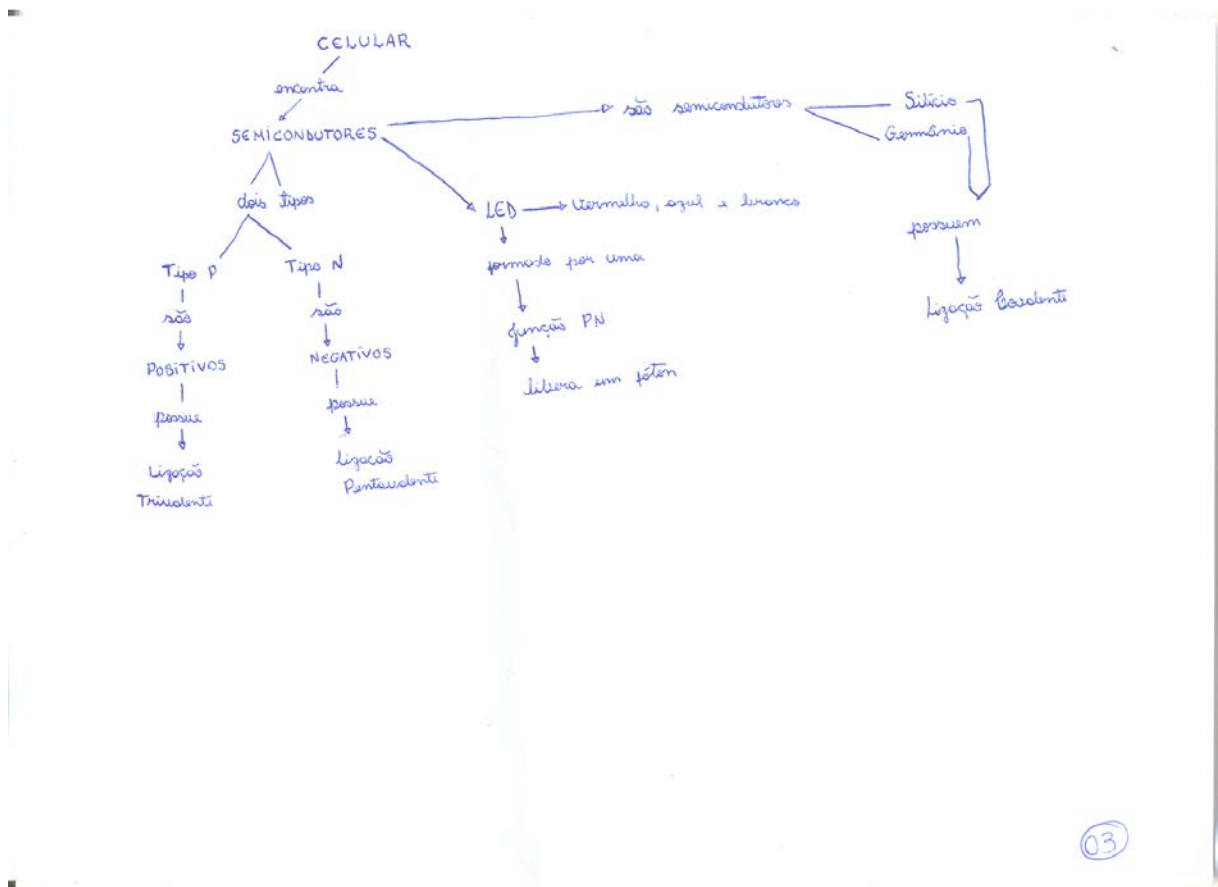 CELULAR
encontra
SEMICONDUTORES
são semicondutores
Silício
Germânio
possuem
Ligação Covalente
dois tipos
Tipo P
são
POSITIVOS
possue
Ligação
Trivalente
Tipo N
são
NEGATIVOS
possue
ligação
Pentavalente
LED
vermelho, azul e branco
formado por uma
junção PN
libera um fóton
03